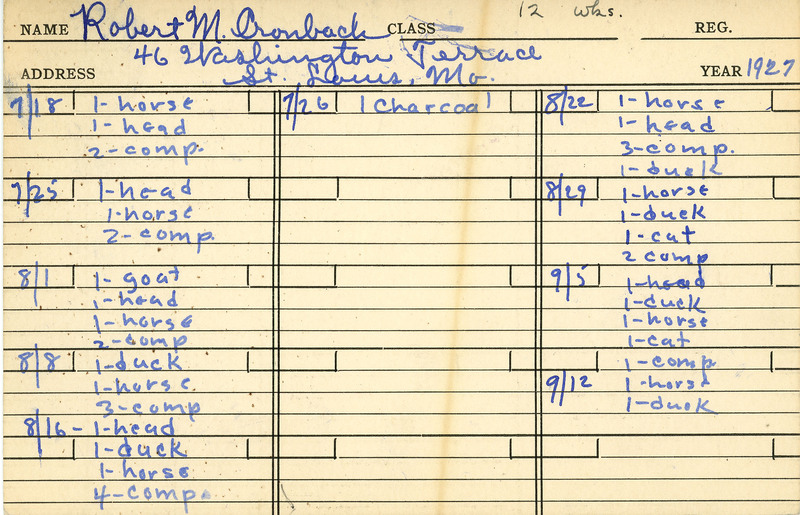 12 wks.
NAME Robert M. Cronbach CLASS REG.
46 Washington Terrace
ADDRESS St. Louis, Mo. YEAR 1927
7/18 1-horse
1-head
2-comp.
7/25 1-head
1-horse
2-comp.
8/1 1-goat
1-head
1-horse
2-comp
8/8 1-duck
1-horse
3-comp
8/16 - 1-head
1-duck
1-horse
4-comp.
7/26 1 Charcoal
8/22 1-horse
1-head
3-comp.
1-duck
8/29 1-horse
1-duck
1-cat
2 comp
9/5 1-head
1-duck
1-horse
1-cat
1-comp
9/12 1-horse
1-duck